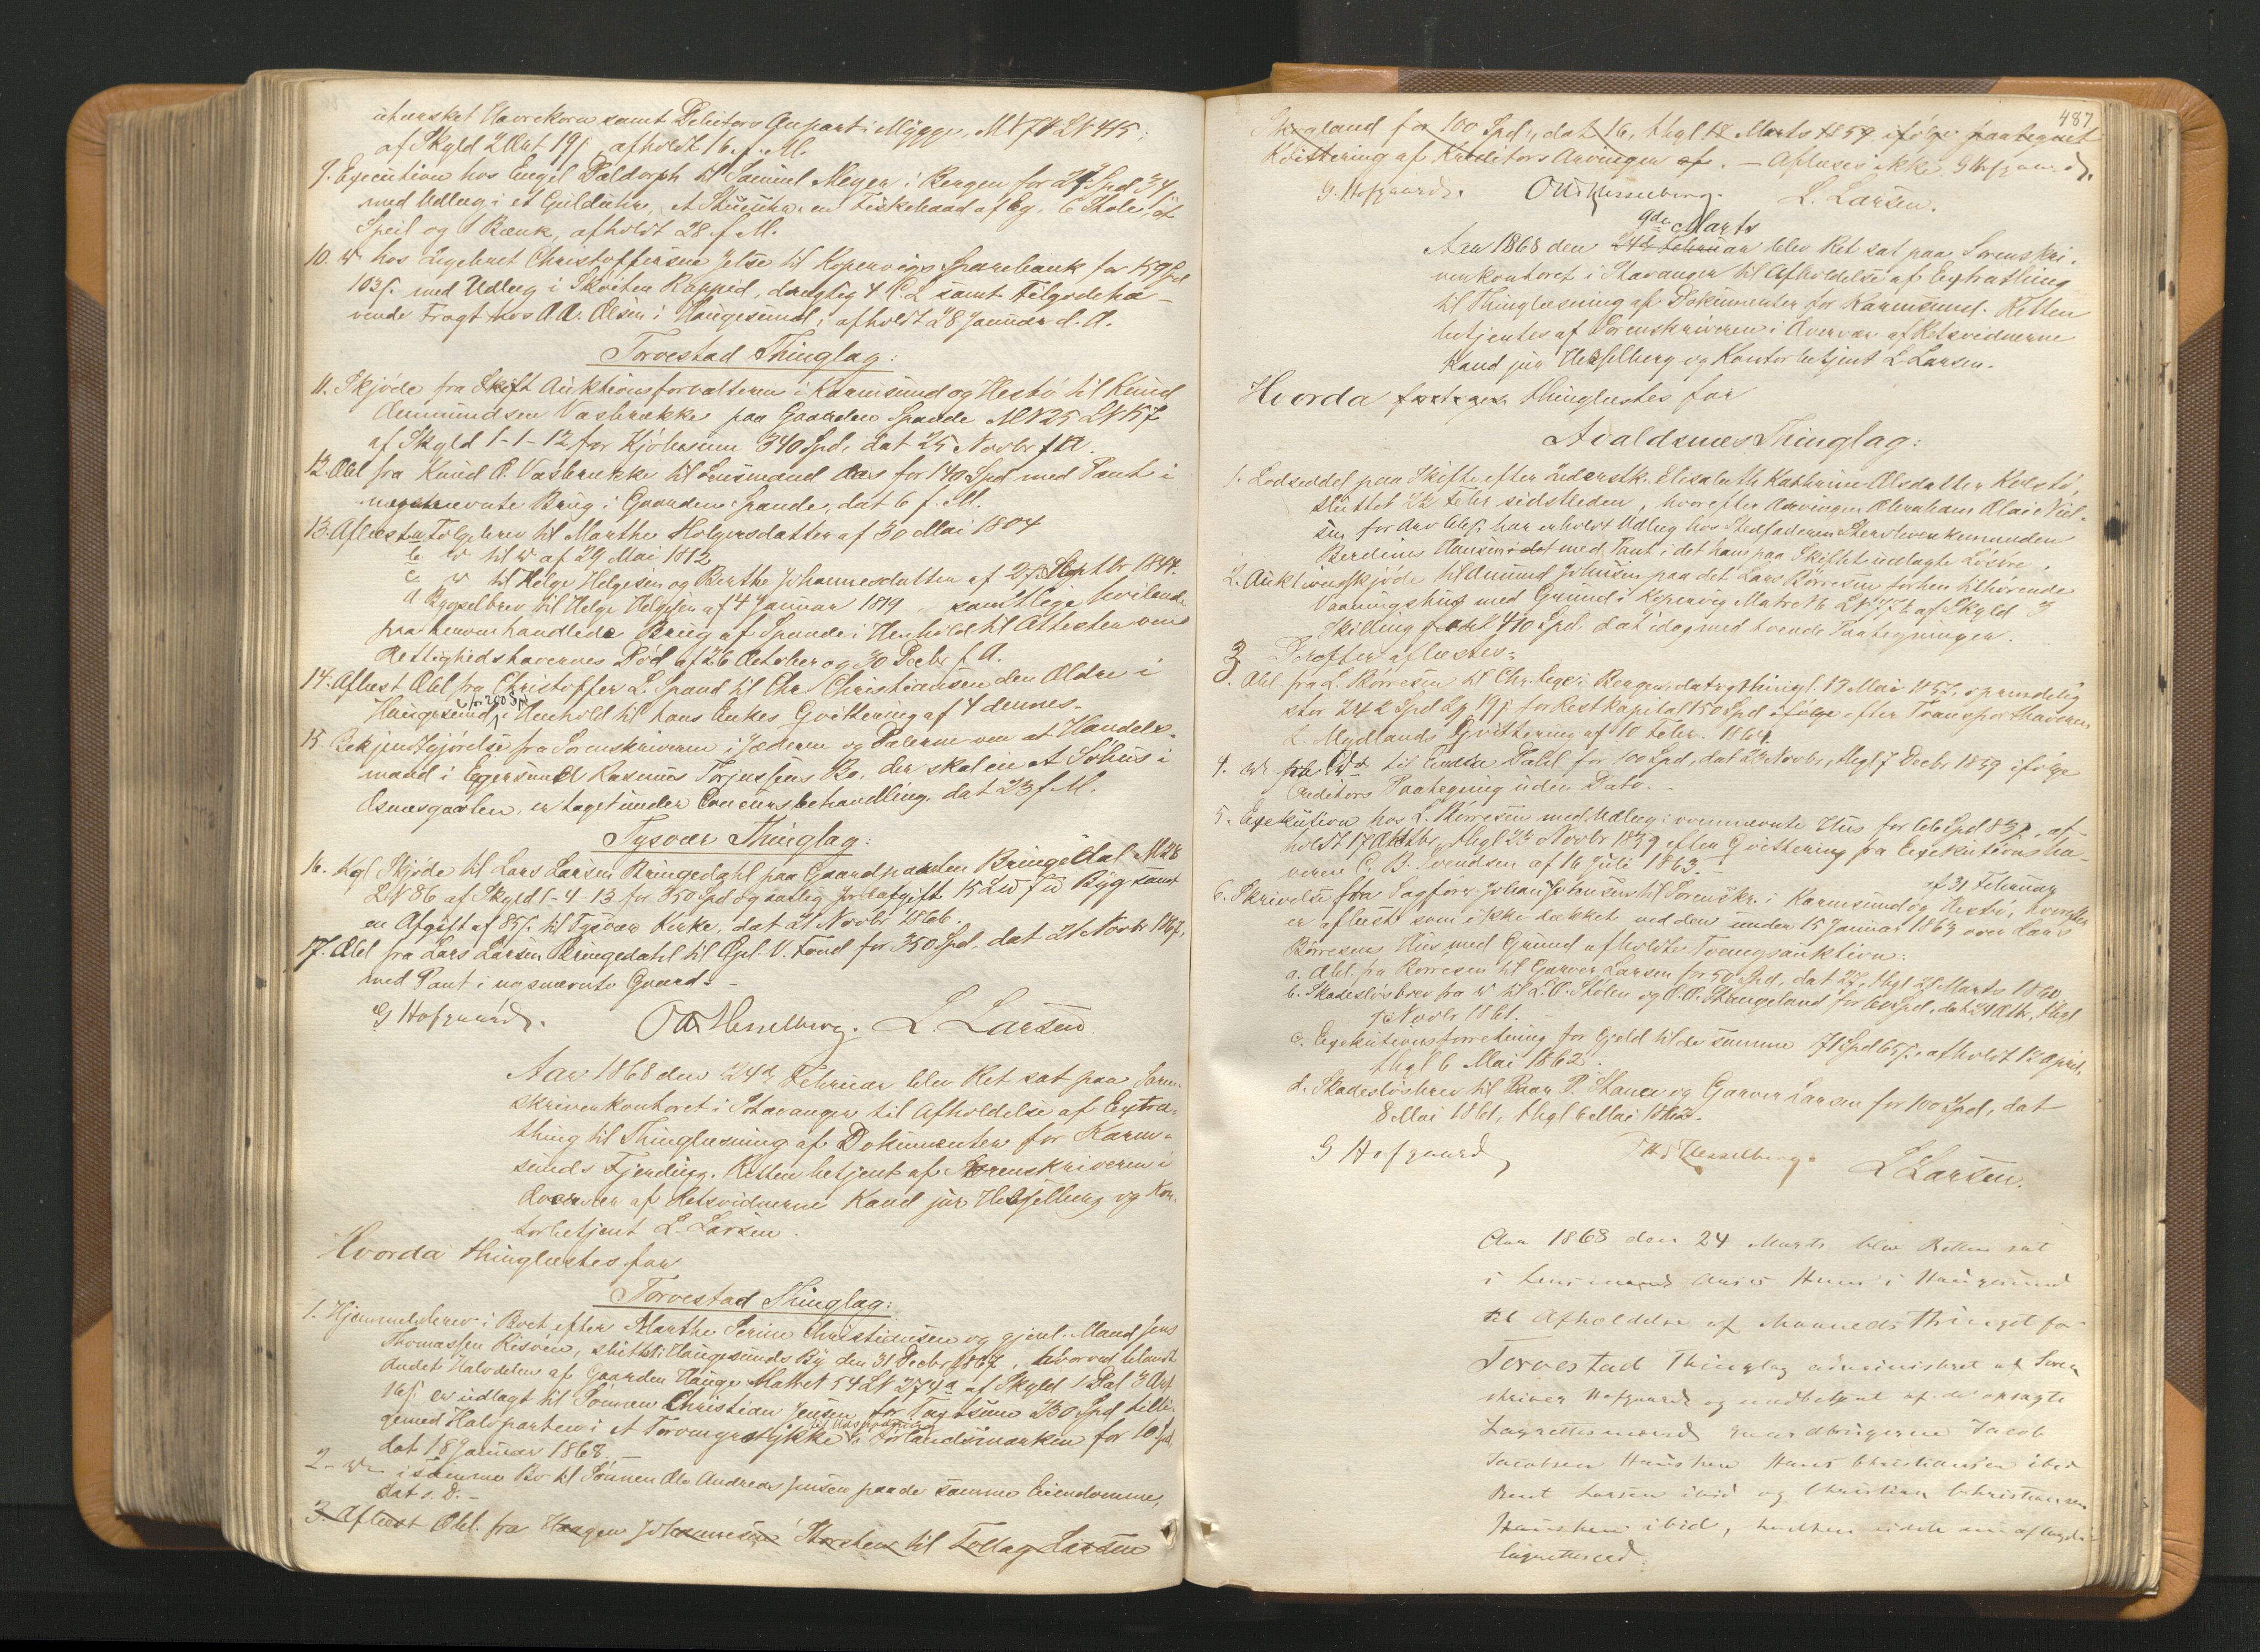 utærsket Havrekorn samt Debitors Gnpart i Mygge, M N 78 LN 415;
af Skyld 2 Ort 19 ſ, afholdt 16. f. M.
9. Execution hos Engel Daldorph til Samuel Meyer i Bergen for 24 Spd 34
med Udlæg i et Guldur, et Stueuhr, en Fiskebaad af Eg, 6 Stole, et
Speil og 1 Bænk, afholdt 28 f. M.
10. do hos Ingebret Christoffersen Jelse til Kopervigs Sparebank for 159 Spd
103 ſ. med Udlæg i Skøiten Rappid, drægtig 4 C.L samt tilgodeha-
vende Fragt hos A.A. Olsen i Haugesund; afholdt d 8 Januar d. A.
Torvestad Thinglag:
11. Skjøde fra Auktionsforvalteren i Karmsund og Hesbø til Knud
Ommundsen Vasbrække paa Gaarden Spande M N 25 LN 157
af Skyld 1-1-12 for Kjøbesum 340 Spd, dat 25 Novbr f A.
12. Obl fra Knud O. Vasbrække til Lensmand Aas for 140 Spd med Pant i
nysnævnte Brug i Gaarden Spande, dat 6 f. M.
13. Aflæst a Følgebrev til Marthe Holgersdatter af 30 Mai 1804
b do til do af 29 Mai 1812
c do til Helge Helgesen og Berthe Johannesdatter af 27 Septbr 1844.
d Bygselbrev til Helge Helgesen af 4 Januar 1819 samtlige hvilende
paa henomhandlede Brug af Spande i Henhold til Attester om
Rettighedshavernes Død af 26 October og 30 Decbr f. A.
14. Aflæst Obl fra Christoffer L. Spand til Chr. Christiansen den Ældre i
Haugesund for 200 Spd i Henhold til hans Enkes Qvittering af 4 dennes.
15. Bekjendtgjørelse fra Sorenskriveren i Jæderen og Dalerne om at Handels-
mand i Eggersund Rasmus Torjussens Bo, der skal eie et Søhus i
Osnesgavlen, er taget under Concursbehandling, dat 23 f M.
Tysvær Thinglag:
16. Kgl Skjøde til Lars Larsen Bringedahl paa Gaardparten Bringedal M 28
LN 86 af Skyld 1-4-13 for 350 Spd og aarlig Jordafgift 15 Byg samt
en Afgift af 85 ſ. til Tysvær Kirke, dat 21 Novbr 1866.
17. Obl fra Lars Larsen Bringedahl til Opl. V. Fond for 350 Spd. dat 21 Novbr 1867,
med Pant i nysnævnte Gaard.
G Hofgaard. Ott Hesselberg. L. Larsen
Aar 1868 den 24de Februar blev Ret sat paa Soren-
skriverkontoret i Stavanger til Afholdelse af Extra-
thing til Thinglæsning af Dokumenter for Karm-
sunds Fjerding. Retten betjent af Sorenskriveren i
Overvær af Retsvidnerne Kand jur Hesselberg og Kon-
torbetjent L. Larsen.
Hvorda thinglæstes for
Torvestad Thinglag:
1. Hjemmelsbrev i Boet efter Marthe Serine Christiansen og gjenl. Mand Jens
Thomassen Risøen, sluttet i Haugesunds By den 31 Decbr 1867, hvorved blandt
andet Halvdelen af Gaarden Hauge Matret 54 LN 274a af Skyld 1 Dal 3 Ort
16 ſ er udlagt til Sønnen Christian Jensen for Taxtsum 250 Spd tilli-
gemed Halvparten i et Torvmyrstykke til Udspadning i Sørlandsmarken for 10 Spd,
dat 18 Januar 1868.
2. do i samme Bo til Sønnen Ole Andreas Jensen paa de samme Eiendomme,
dat s. D.
3. Aflæst Obl. fra Haagen Johannesen Storsten til Tollag Larsen
487
Skeraland for 100 Spd, dat 16, thgl 18 Marts 1859 ifølge paategnet
Kvittering af Kreditors Arvinger. – Aflæses ikke. G Hofgaard.
G. Hofgaard. Ott Hesselberg. L. Larsen.
9de Marts
Aar 1868 den 24d Februar blev Ret sat paa Sorenskri-
verkontoret i Stavanger til Afholdelse af Extrathing
til Thinglæsning af Dokumenter for Karmsund. Retten
betjentes af Sorenskriveren i Overvær af Retsvidnerne
Kand jur Hesselberg og Kontorbetjent L Larsen.
Hvorda foretoges thinglæstes for
Avaldsnes Thinglag:
1. Lodseddel paa Skifte efter Elisabeth Kathrine Olsdatter Kolstø,
sluttet 22 Febr sidstleden, hvorefter Arvingen Abraham Olai Niel-
sen for Arv har erholdt Udlæg hos Stedfaderen
Berdines Hansen i det med Pant i det ham paa Skiftet udlagte Løsøre.
2. Auktionsskjøde til Amund Johnsen paa det Lars Børresen forhen tilhørende
Vaaningshus med Grund i Kopervig Matr N 6 LN 77 b af Skyld 3
Skilling for 410 Spd. dat idag med tvende Paategninger.
3 Derefter aflæstes:
Obl. fra L. Børresen til Chr. Lexe i Bergen dat og thingl. 19 Mai 1857, oprindelig
stor 242 Spd 2 ſ 19 ſ for Restkapital 150 Spd ifølge efter Transporthaveren
L. Mydlands Qvittering af 10 Febr. 1864.
4. do fra do til Endre Dahl for 100 Spd, dat 23 Novbr, thgl 7 Decbr 1859 ifølge
Creditors Paategning uden Dato.
5. Exekution hos L. Børresen med Udlæg i ovennævnte Hus for 66 Spd 83 ſ, af-
holdt 17 Oktbr, thgl 23 Novbr 1859 efter Qvittering fra Exekutionsha-
veren C. B. Svendsen af 16 Juli 1863.
6. Skrivelse fra Sagfører Johan Johnsen til Sorenskr. i Karmsund og Hesbø, af 31 Februar hvorefter
er aflæst som ikke dækket ved den under 15 Januar 1863 over Lars
Børresens Hus med Grund afholdte Tvangsauktion:
a. Obl. fra Børresen til Garver Larsen for 50 Spd, dat 27, thgl 28 Marts 1860
b. Skadesløsbrev fra do til L. O. Stolen og O. O. Stangeland for 60 Spd, dat 24 Oktbr, thgl
Novbr 1861.
c. Exekutionsforretning for Gjæld til de samme 71 Spd 65 ſ, afholdt 12 April,
thgl 6 Mai 1862.
d. Skadesløsbrev til Baar P. Stange og Garver Larsen for 100 Spd, dat
8 Mai 1861, thgl 6 Mai 1862.
G Hofgaard Ott Hesselberg. L Larsen.
Aar 1868 den 24 Marts blev Retten sat
i Lensmand Aases Huus i Haugesund
til Afholdelse af Maanedsthinget for
Torvestad Thinglag administret af Soren-
skriver Hofgaard og medbetjent af de opsagte
Laugrettesmænd Gaardbrugerne Jacob
Jacobsen Hausken Hans Christiansen ibid
Bent Larsen ibid og Christian Christiansen
Hausken ibid, hvilken sidste nu aflagde
Laugretteseed.